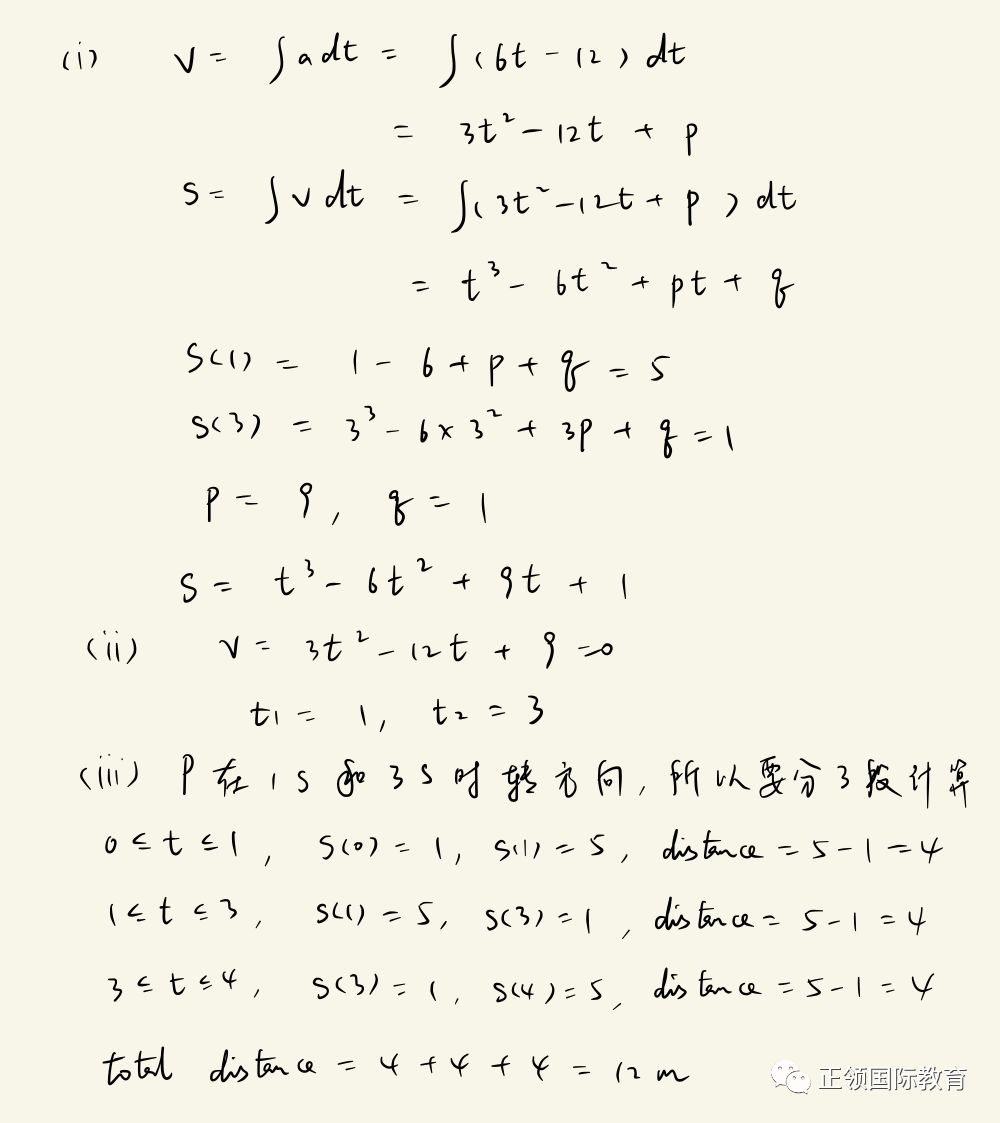 (i) v = ∫a dt = ∫(6t - 12) dt
= 3t² - 12t + p
s = ∫v dt = ∫(3t² - 12t + p) dt
= t³ - 6t² + pt + q
s(1) = 1 - 6 + p + q = 5
s(3) = 3³ - 6 × 3² + 3p + q = 1
p = 9, q = 1
s = t³ - 6t² + 9t + 1
(ii) v = 3t² - 12t + 9 = 0
t₁ = 1, t₂ = 3
(iii) P在1s和3s时转方向,所以要分3段计算
0 ≤ t ≤ 1, s(0) = 1, s(1) = 5, distance = 5 - 1 = 4
1 ≤ t ≤ 3, s(1) = 5, s(3) = 1, distance = 5 - 1 = 4
3 ≤ t ≤ 4, s(3) = 1, s(4) = 5, distance = 5 - 1 = 4
total distance = 4 + 4 + 4 = 12 m
正领国际教育